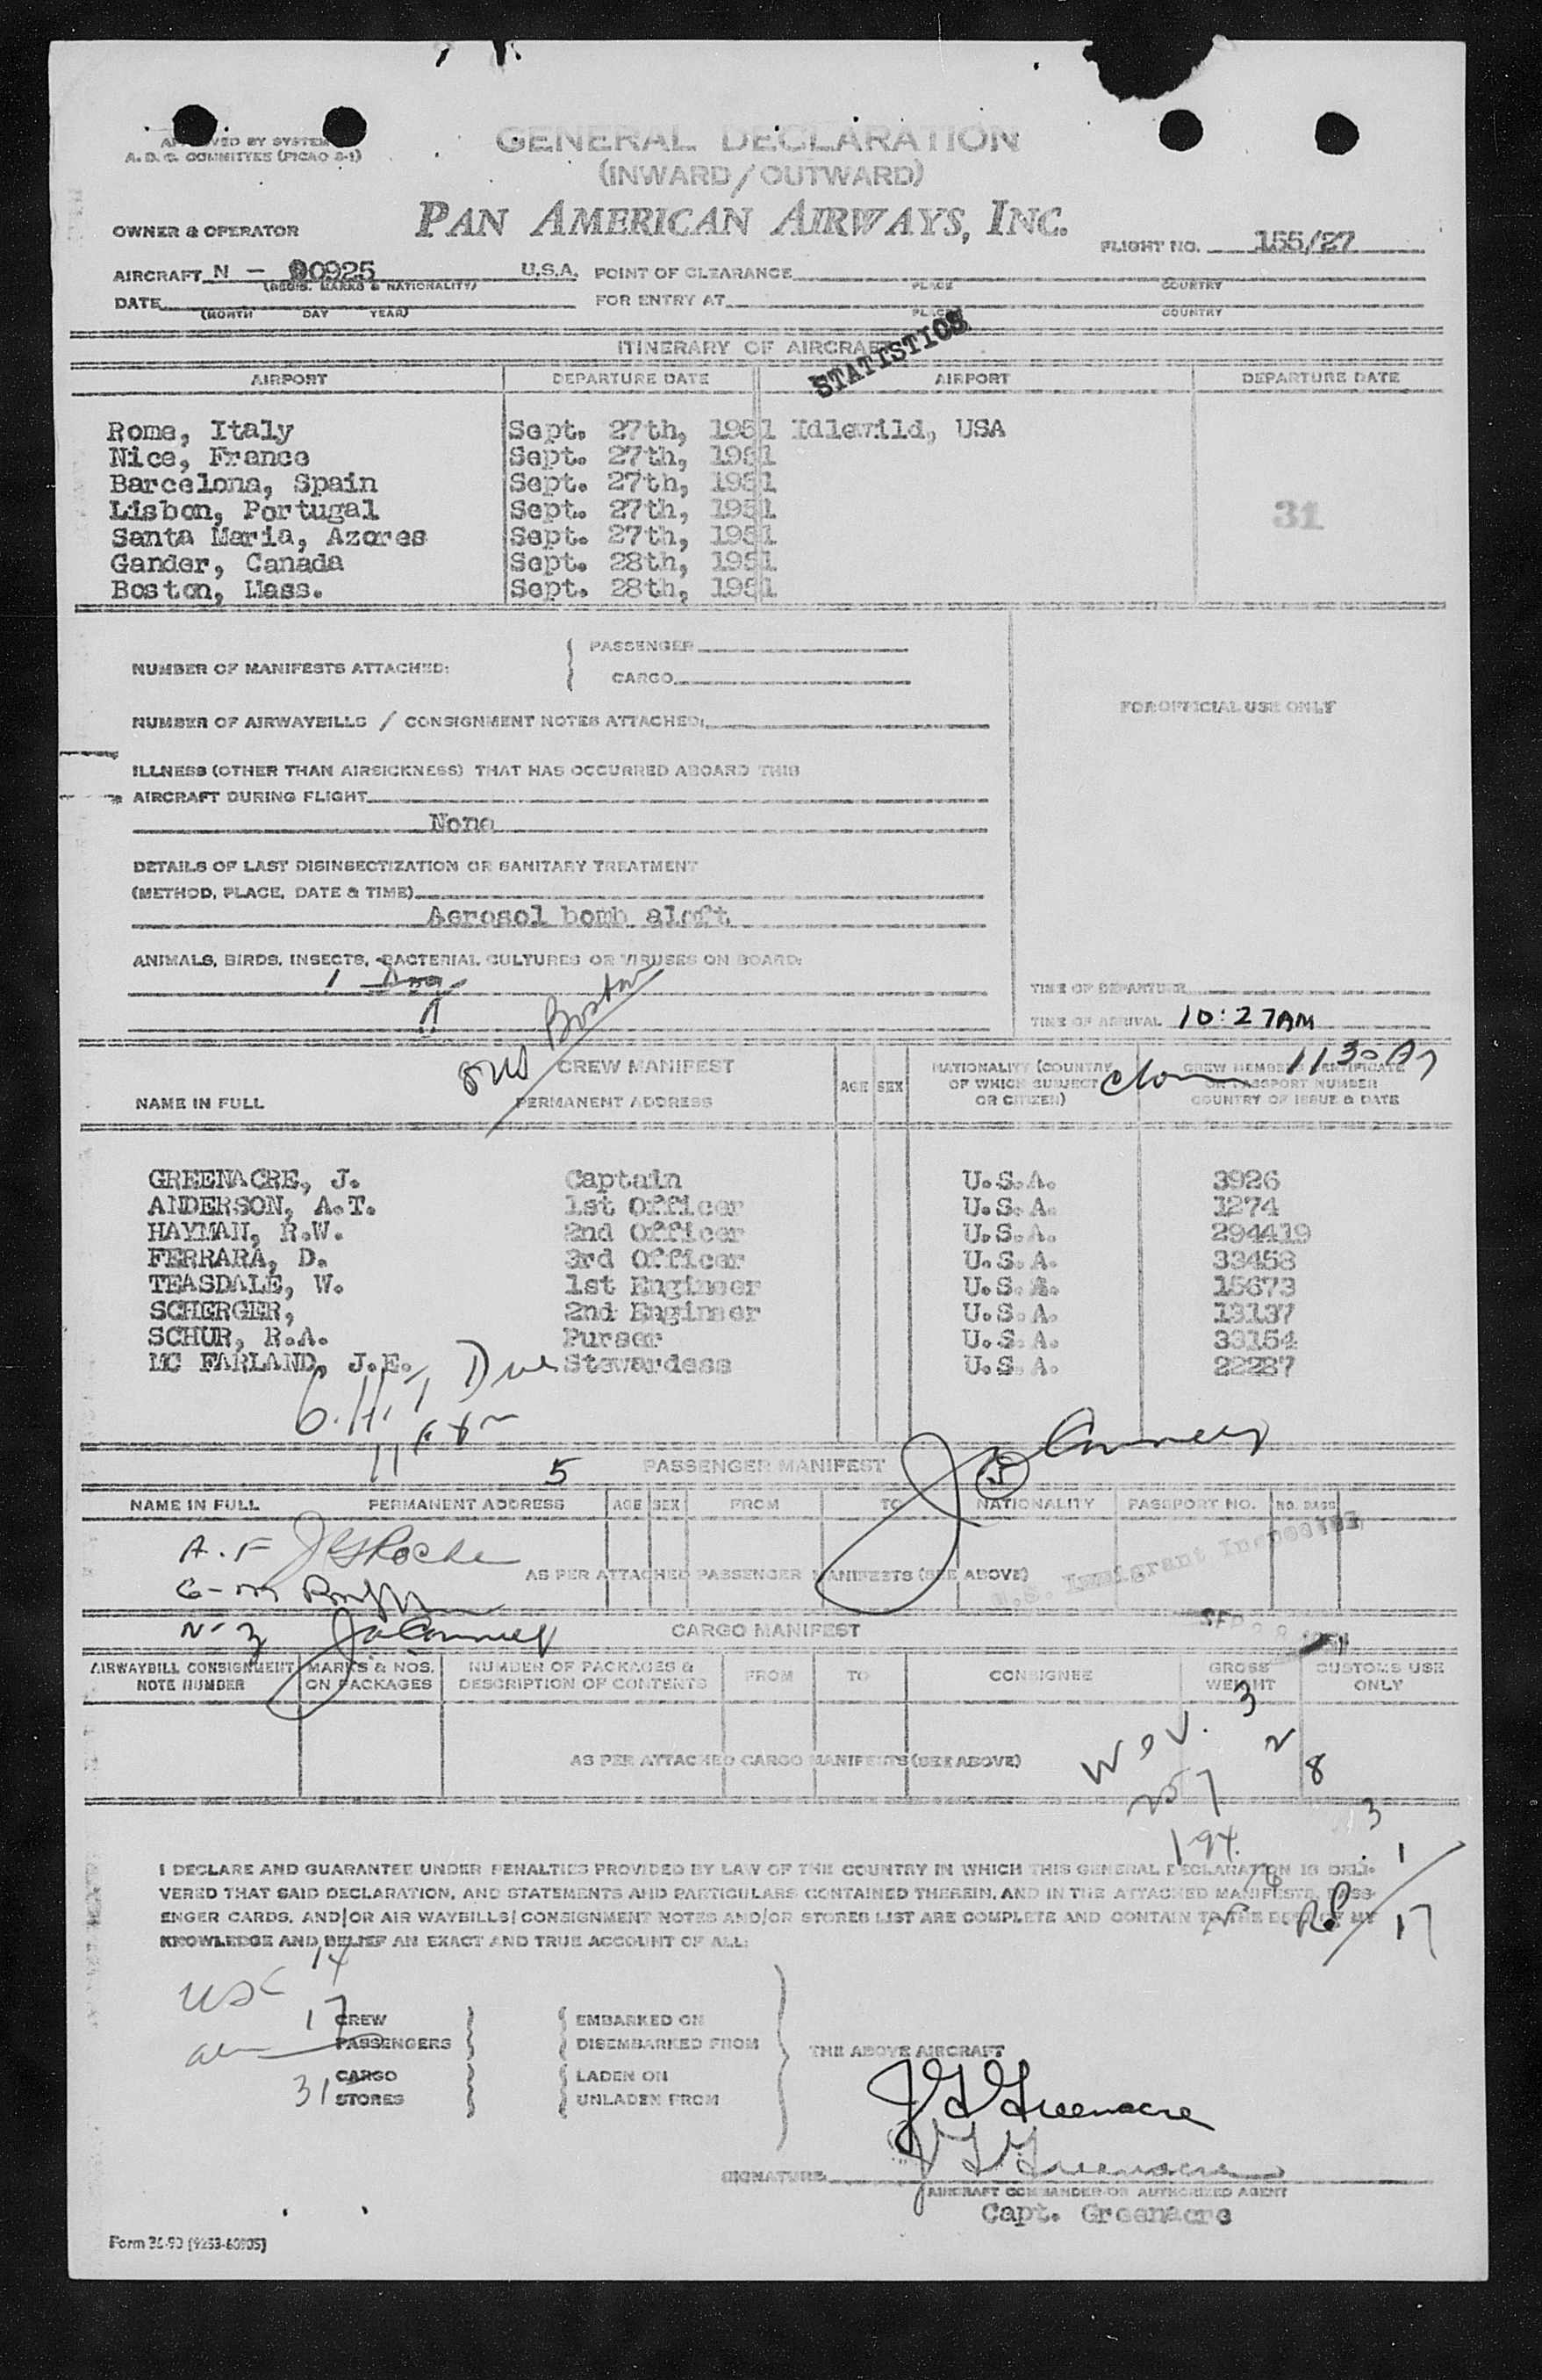 GENERAL DECLARATION
(INWARD/OUTWARD)
A. D. C. COMMITTEE (PICAO 2-1)
PAN AMERICAN AIRWAYS, INC.
OWNER & OPERATOR
FLIGHT NO. 155/27
AIRCRAFT N - 90925 U.S.A. POINT OF CLEARANCE
(REGIS. MARKS & NATIONALITY) PLACE COUNTRY
DATE FOR ENTRY AT
(MONTH DAY YEAR) PLACE COUNTRY
STATISTICS
ITINERARY OF AIRCRAFT
AIRPORT DEPARTURE DATE AIRPORT DEPARTURE DATE
Rome, Italy Sept. 27th, 1951 Idlewild, USA
Nice, France Sept. 27th, 1951
Barcelona, Spain Sept. 27th, 1951
Lisbon, Portugal Sept. 27th, 1951 31
Santa Maria, Azores Sept. 27th, 1951
Gander, Canada Sept. 28th, 1951
Boston, Mass. Sept. 28th, 1951
NUMBER OF MANIFESTS ATTACHED: PASSENGER
CARGO
NUMBER OF AIRWAYBILLS / CONSIGNMENT NOTES ATTACHED:
FOR OFFICIAL USE ONLY
ILLNESS (OTHER THAN AIRSICKNESS) THAT HAS OCCURRED ABOARD THIS
AIRCRAFT DURING FLIGHT
None
DETAILS OF LAST DISINSECTIZATION OR SANITARY TREATMENT
(METHOD, PLACE, DATE & TIME)
Aerosol bomb aloft
ANIMALS, BIRDS, INSECTS, BACTERIAL CULTURES OR VIRUSES ON BOARD:
1 Dog
Boston
TIME OF DEPARTURE
TIME OF ARRIVAL 10:27AM
1130 A
CREW MANIFEST
NAME IN FULL PERMANENT ADDRESS AGE SEX NATIONALITY (COUNTRY OF WHICH SUBJECT OR CITIZEN) CREW MEMBERS CERTIFICATE OR PASSPORT NUMBER COUNTRY OF ISSUE & DATE
GREENACRE, J. Captain U.S.A. 3926
ANDERSON, A.T. 1st Officer U.S.A. 1274
HAYMAN, R.W. 2nd Officer U.S.A. 294419
FERRARA, D. 3rd Officer U.S.A. 33458
TEASDALE, W. 1st Engineer U.S.A. 15673
SCHERGER, 2nd Engineer U.S.A. 13137
SCHUR, R.A. Purser U.S.A. 33154
MC FARLAND, J.E. Stewardess U.S.A. 22287
5 PASSENGER MANIFEST
NAME IN FULL PERMANENT ADDRESS AGE SEX FROM TO NATIONALITY PASSPORT NO. NO. BAGS
A.F
AS PER ATTACHED PASSENGER MANIFESTS (SEE ABOVE)
U.S. Immigrant Inspector
CARGO MANIFEST
AIRWAYBILL CONSIGNMENT NOTE NUMBER MARKS & NOS. ON PACKAGES NUMBER OF PACKAGES & DESCRIPTION OF CONTENTS FROM TO CONSIGNEE GROSS WEIGHT CUSTOMS USE ONLY
3
8
AS PER ATTACHED CARGO MANIFESTS (SEE ABOVE)
3
1
I DECLARE AND GUARANTEE UNDER PENALTIES PROVIDED BY LAW OF THE COUNTRY IN WHICH THIS GENERAL DECLARATION IS DELI-
VERED THAT SAID DECLARATION, AND STATEMENTS AND PARTICULARS CONTAINED THEREIN, AND IN THE ATTACHED MANIFESTS, PASS-
ENGER CARDS, AND/OR AIR WAYBILLS/CONSIGNMENT NOTES AND/OR STORES LIST ARE COMPLETE AND CONTAIN TO THE BEST OF MY
KNOWLEDGE AND BELIEF AN EXACT AND TRUE ACCOUNT OF ALL:
17
14
17
CREW EMBARKED ON
PASSENGERS DISEMBARKED FROM THE ABOVE AIRCRAFT
31 CARGO LADEN ON
STORES UNLADEN FROM
J G Greenacre
J G Greenacre
SIGNATURE
AIRCRAFT COMMANDER OR AUTHORIZED AGENT
Capt. Greenacre